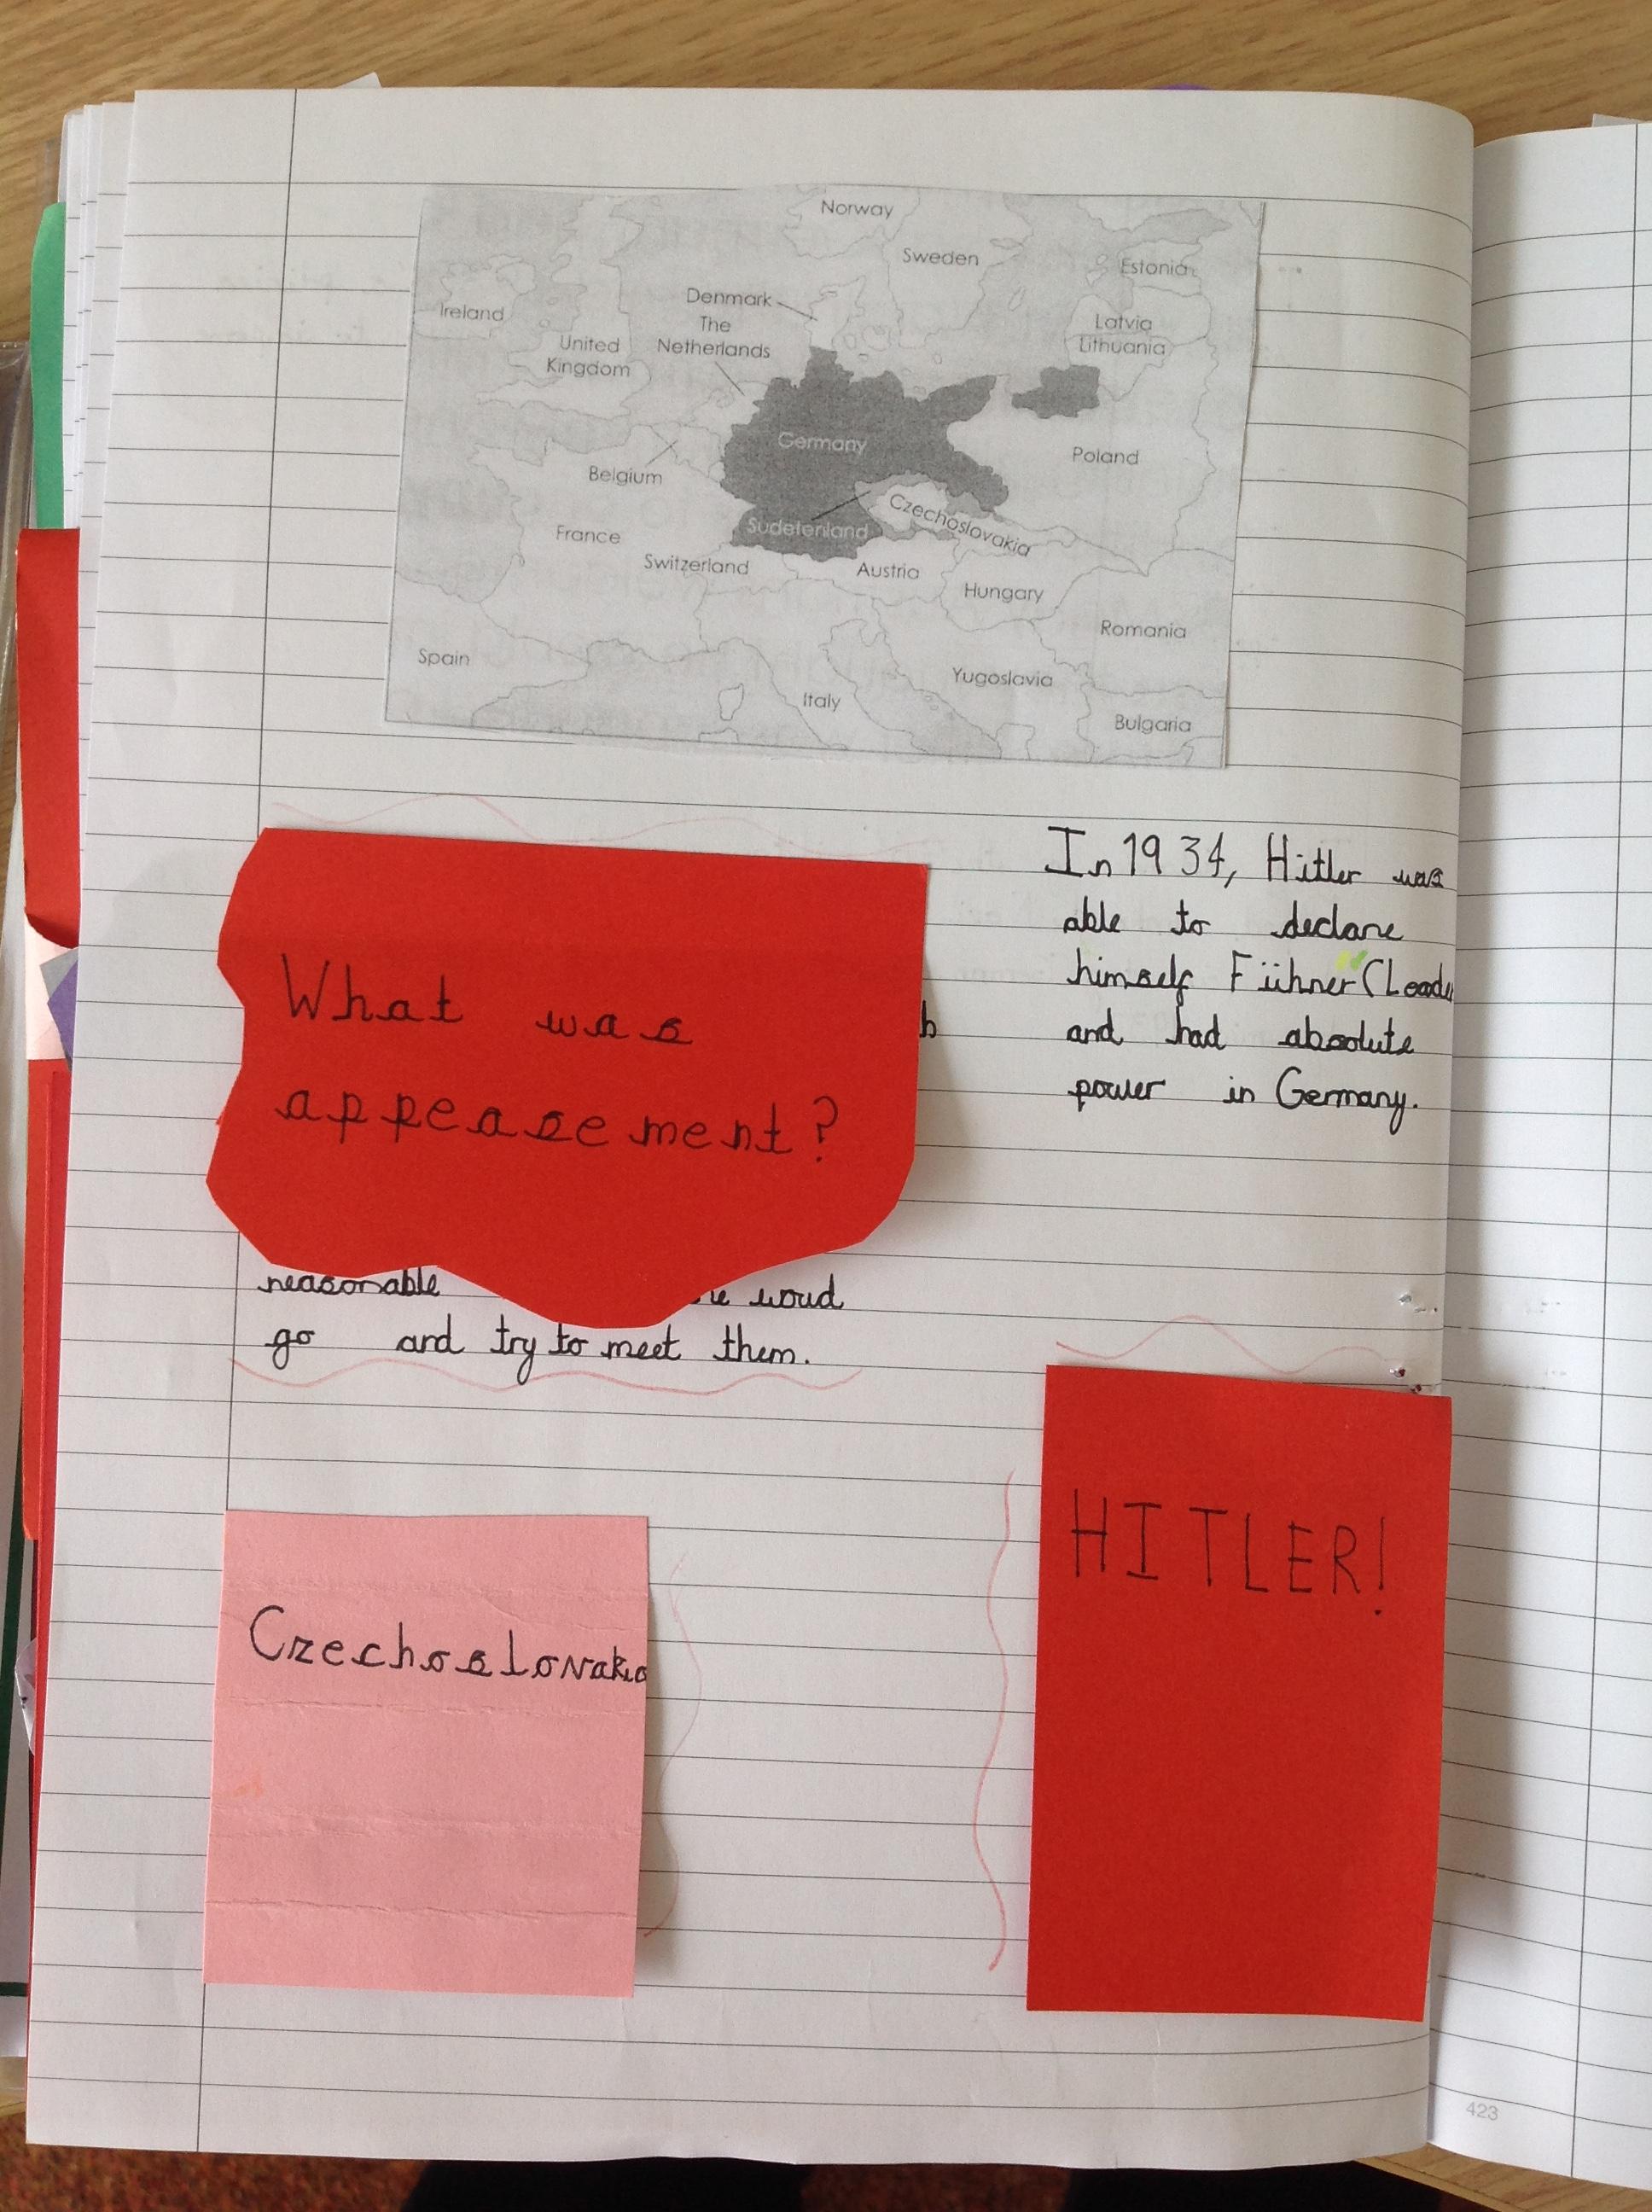 Norway
Sweden
Estonia
Denmark
Ireland
The
Netherlands
Latvia
Lithuania
United
Kingdom
Germany
Poland
Belgium
Czechoslovakia
Sudetenland
France
Switzerland
Austria
Hungary
Romania
Spain
Yugoslavia
Italy
Bulgaria
What was
appeasement?
b
reasonable woud
go and try to meet them.
In 1934, Hitler was
able to declare
himself Führer (Leader
and had absolute
power in Germany.
Czechoslovakia
HITLER!
423